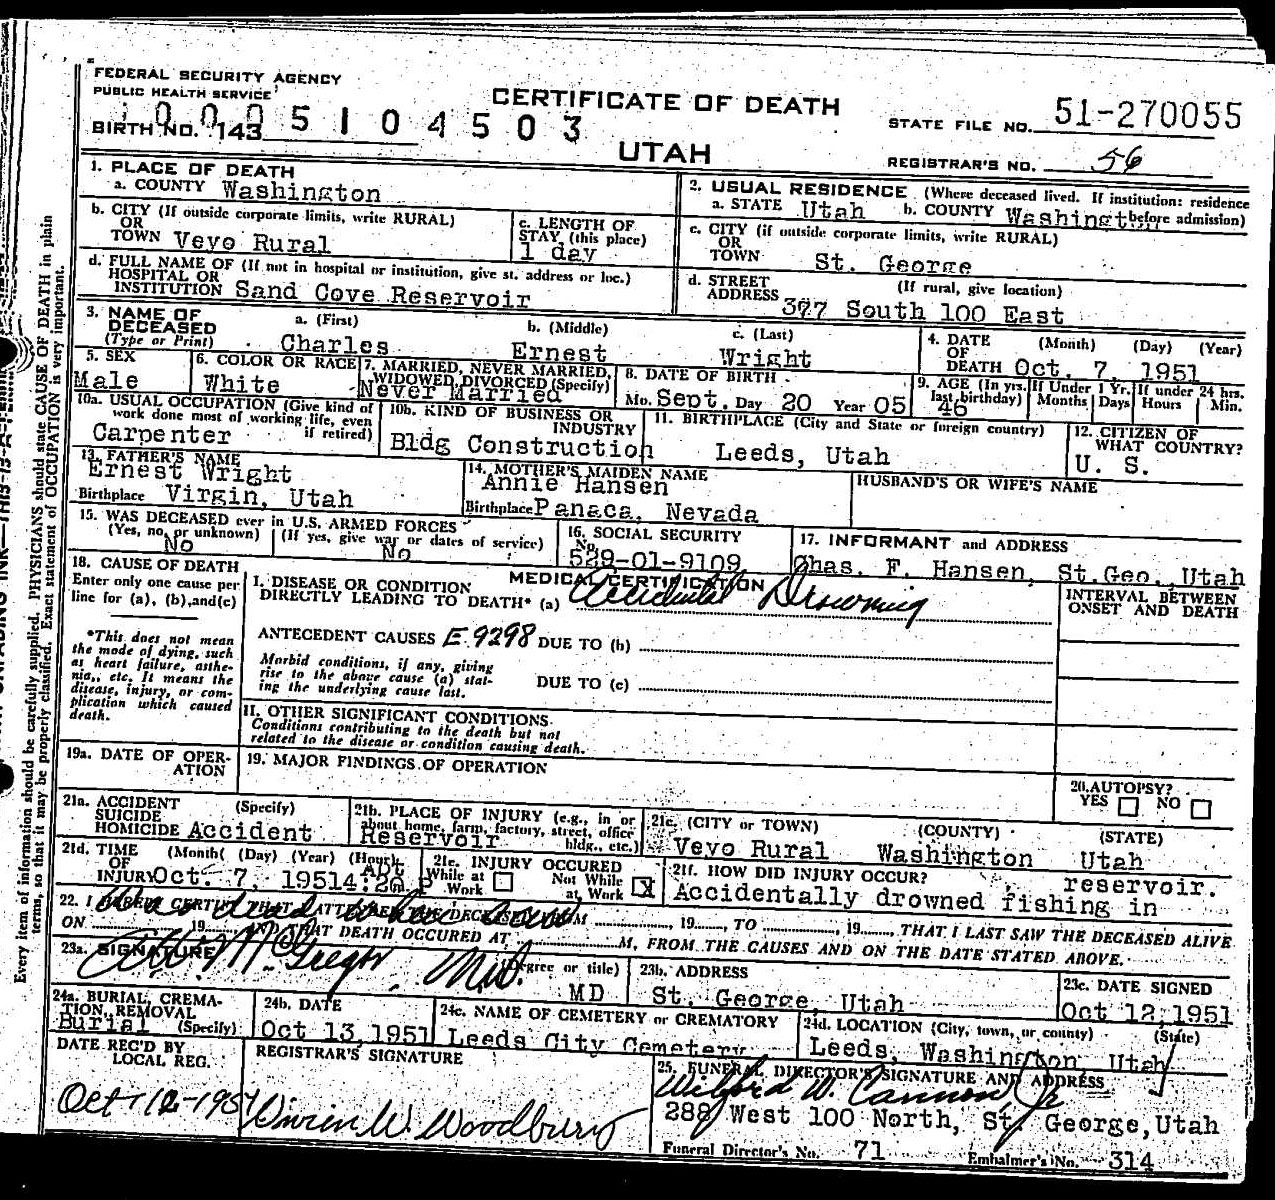 FEDERAL SECURITY AGENCY
PUBLIC HEALTH SERVICE
CERTIFICATE OF DEATH
STATE FILE NO. 51-270055
10005104503
BIRTH NO. 143
UTAH
REGISTRAR'S NO. 56
1. PLACE OF DEATH
a. COUNTY Washington
2. USUAL RESIDENCE (Where deceased lived. If institution: residence before admission)
a. STATE Utah b. COUNTY Washingt
b. CITY (If outside corporate limits, write RURAL)
OR
TOWN Veyo Rural
c. LENGTH OF
STAY (this place)
1 day
c. CITY (if outside corporate limits, write RURAL)
OR
TOWN St. George
d. FULL NAME OF (If not in hospital or institution, give st. address or loc.)
HOSPITAL OR
INSTITUTION Sand Cove Reservoir
d. STREET (If rural, give location)
ADDRESS 377 South 100 East
3. NAME OF
DECEASED
(Type or Print)
a. (First) b. (Middle) c. (Last)
Charles Ernest Wright
4. DATE (Month) (Day) (Year)
OF
DEATH Oct. 7, 1951
5. SEX
Male
6. COLOR OR RACE
White
7. MARRIED, NEVER MARRIED,
WIDOWED, DIVORCED (Specify)
Never Married
8. DATE OF BIRTH
Mo. Sept. Day 20 Year 05
9. AGE (In yrs. last birthday)
46
If Under 1 Yr. If under 24 hrs.
Months Days Hours Min.
10a. USUAL OCCUPATION (Give kind of
work done most of working life, even
if retired)
Carpenter
10b. KIND OF BUSINESS OR
INDUSTRY
Bldg Construction
11. BIRTHPLACE (City and State or foreign country)
Leeds, Utah
12. CITIZEN OF
WHAT COUNTRY?
U. S.
13. FATHER'S NAME
Ernest Wright
Birthplace Virgin, Utah
14. MOTHER'S MAIDEN NAME
Annie Hansen
Birthplace Panaca, Nevada
HUSBAND'S OR WIFE'S NAME
15. WAS DECEASED ever in U.S. ARMED FORCES
(Yes, no, or unknown) (If yes, give war or dates of service)
No No
16. SOCIAL SECURITY
No.
529-01-9109
17. INFORMANT and ADDRESS
Chas. F. Hansen, St.Geo., Utah
18. CAUSE OF DEATH
Enter only one cause per
line for (a), (b), and (c)
MEDICAL CERTIFICATION
I. DISEASE OR CONDITION
DIRECTLY LEADING TO DEATH* (a) Accidental Drowning
INTERVAL BETWEEN
ONSET AND DEATH
*This does not mean
the mode of dying, such
as heart failure, asthe-
nia, etc. It means the
disease, injury, or com-
plication which caused
death.
ANTECEDENT CAUSES E 9298 DUE TO (b)
Morbid conditions, if any, giving
rise to the above cause (a) stat-
ing the underlying cause last.
DUE TO (c)
II. OTHER SIGNIFICANT CONDITIONS
Conditions contributing to the death but not
related to the disease or condition causing death.
19a. DATE OF OPER-
ATION
19. MAJOR FINDINGS OF OPERATION
20. AUTOPSY?
YES NO
21a. ACCIDENT (Specify)
SUICIDE
HOMICIDE Accident
21b. PLACE OF INJURY (e.g., in or
about home, farm, factory, street, office
bldg., etc.)
Reservoir
21c. (CITY or TOWN) (COUNTY) (STATE)
Veyo Rural Washington Utah
21d. TIME (Month) (Day) (Year) (Hour)
OF
INJURY Oct. 7, 1951 4:20 P
21e. INJURY OCCURED
While at Work Not While at Work X
21f. HOW DID INJURY OCCUR?
Accidentally drowned fishing in reservoir.
22. I HEREBY CERTIFY THAT I ATTENDED THE DECEASED FROM 19 TO 19 THAT I LAST SAW THE DECEASED ALIVE
Was dead when
ON 19 AND THAT DEATH OCCURED AT M, FROM THE CAUSES AND ON THE DATE STATED ABOVE.
23a. SIGNATURE (Degree or title)
McGregor M.D.
MD
23b. ADDRESS
St. George, Utah
23c. DATE SIGNED
Oct 12, 1951
24a. BURIAL, CREMA-
TION, REMOVAL
Burial (Specify)
24b. DATE
Oct 13, 1951
24c. NAME OF CEMETERY or CREMATORY
Leeds City Cemetery
24d. LOCATION (City, town, or county) (State)
Leeds, Washington, Utah
DATE REC'D BY
LOCAL REG.
Oct 12-1951
REGISTRAR'S SIGNATURE
W. Woodbury
25. FUNERAL DIRECTOR'S SIGNATURE AND ADDRESS
Wilford W. Cannon Jr
288 West 100 North, St. George, Utah
Funeral Director's No. 71 Embalmer's No. 314
Every item of information should be carefully supplied. PHYSICIANS should state CAUSE OF DEATH in plain
terms, so that it may be properly classified. Exact statement of OCCUPATION is very important.